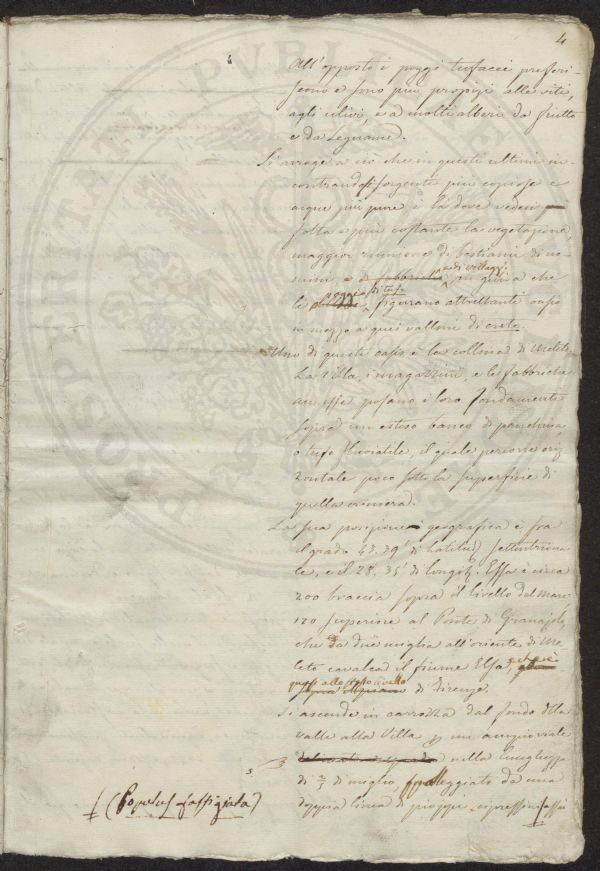 4
All'opposto i poggi tufacei preferi-
scono e sono più propizi alle viti,
agli ulivi, e a molti alberi da frutto
e da Legname.
Si arroge a ciò che in questi ultimi in-
contrandosi sorgenti più copiose e
acque più pure è là dove vedesi
folta e più costante la vegetazione,
maggior riunione di bestiami di uo-
mini, e di villaggj, in guisa che
le di tufo figurano altrettanti oasis
in mezzo a quei valloni di creta.
Uno di questi oasis è la collina di Meleto.
La Villa, i magazzini, e le fabbriche
annesse posano i loro fondamenti
sopra un esteso banco di panchina
o tufo fluviatile, il quale percorre oriz-
zontale poco sotto la superficie di
quella eminenza.
La sua posizione geografica è fra
il grado 43. 39' di Latitud. settentriona-
le, e il 28. 35' di Longit. Essa è circa
200 braccia sopra il livello del mare
120 superiore al Ponte di Granajolo,
che da due miglia all'oriente di Me-
leto cavalca il fiume Elsa, che è
quasi allo stesso livello
di Firenze.
Si ascende in carrozza dal fondo della
valle alla Villa per un ampio viale
nella lunghezza
di 2/3 di miglio, spalleggiato da una
doppia linea di pioppi cipressini assai
(Populus fastigiata)